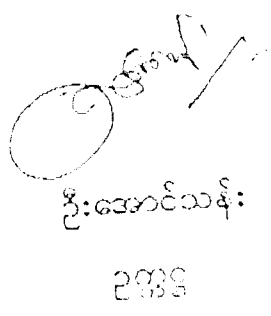 ဦးအောင်သန်း
ဥက္ကဋ္ဌ